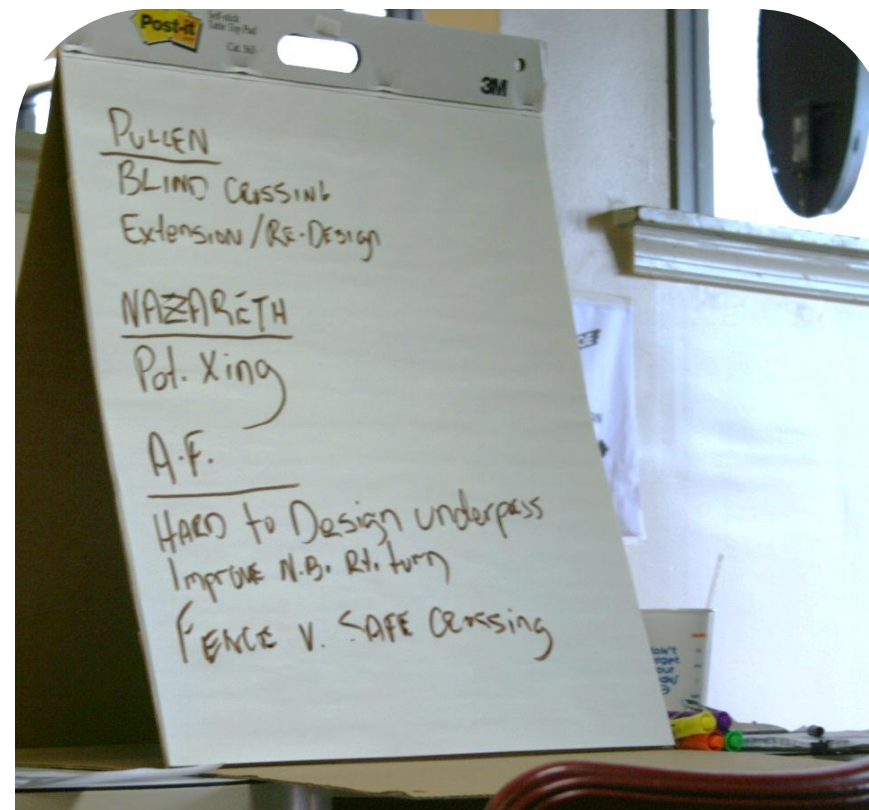 Post-it
Self-stick
Table Top Pad
Cat. 563
3M
PULLEN
BLIND CROSSING
Extension/RE-DESIGN
NAZARETH
Pot. Xing
A.F.
HARD to Design underpass
Improve N.B. Rt. turn
FENCE V. SAFE Crossing